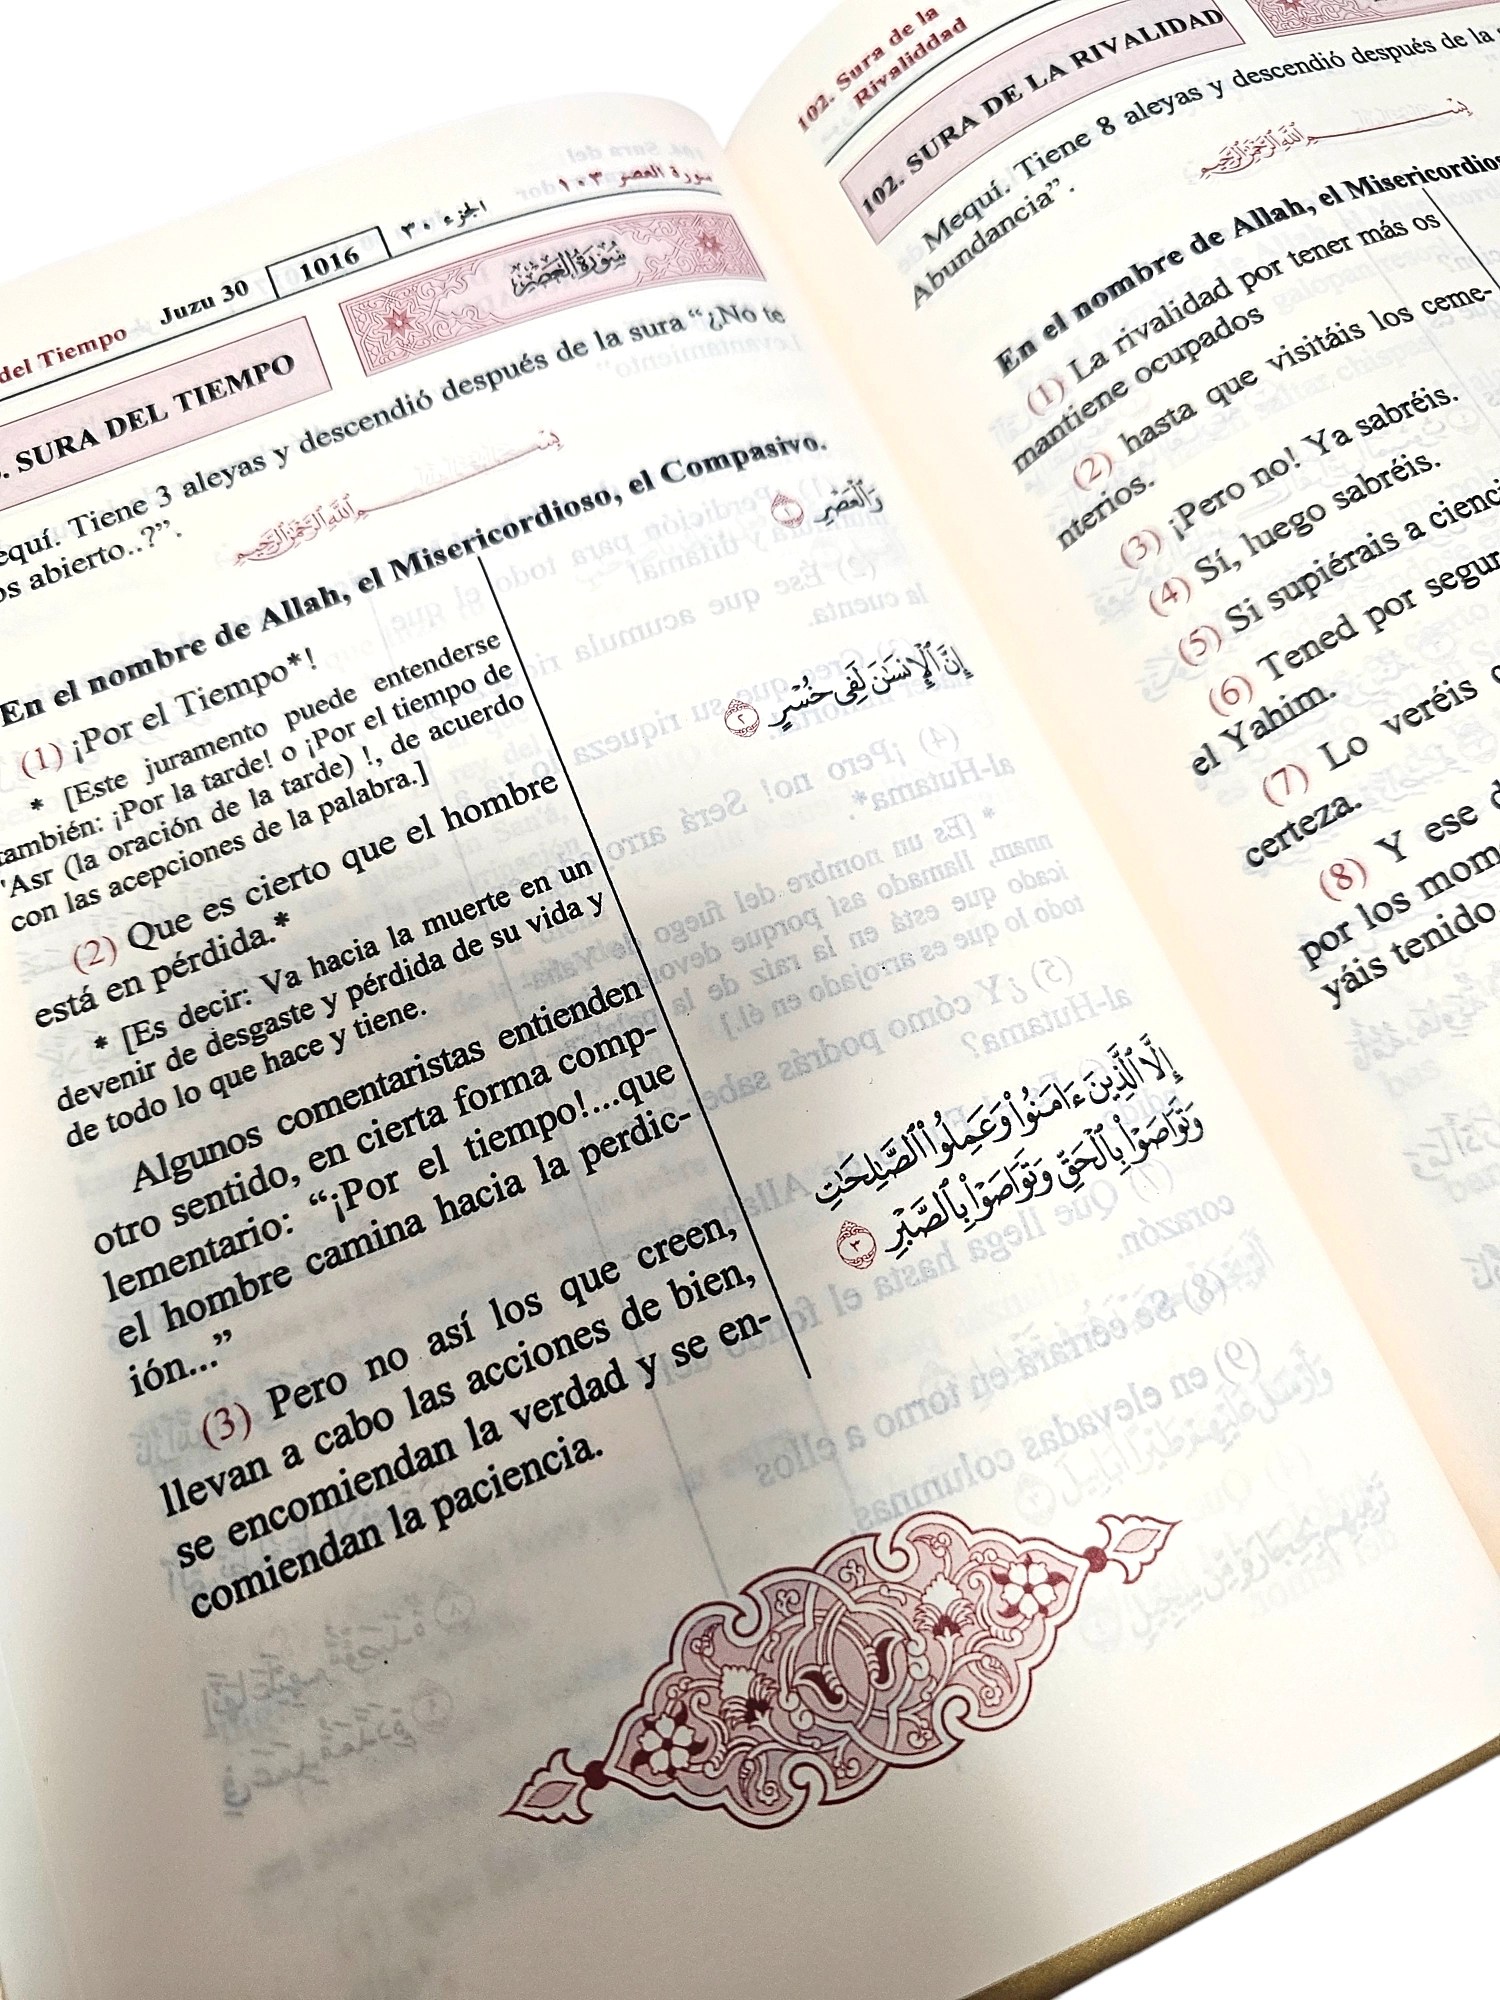 del Tiempo
Juzu 30
1016
الجزء ٣٠
سورة العصر ١٠٣
SURA DEL TIEMPO
سُورَةُ العَصْرِ
Tiene 3 aleyas y descendió después de la sura “¿No te
abierto..?”.
بِسْمِ ٱللَّهِ ٱلرَّحْمَٰنِ ٱلرَّحِيمِ
En el nombre de Allah, el Misericordioso, el Compasivo.
(1) ¡Por el Tiempo*!
* [Este juramento puede entenderse
también: ¡Por la tarde! o ¡Por el tiempo de
'Asr (la oración de la tarde) !, de acuerdo
con las acepciones de la palabra.]
(2) Que es cierto que el hombre
está en pérdida.*
* [Es decir: Va hacia la muerte en un
devenir de desgaste y pérdida de su vida y
de todo lo que hace y tiene.
Algunos comentaristas entienden
otro sentido, en cierta forma comp-
lementario: “¡Por el tiempo!...que
el hombre camina hacia la perdic-
ión...”
(3) Pero no así los que creen,
llevan a cabo las acciones de bien,
se encomiendan la verdad y se en-
comiendan la paciencia.
وَٱلْعَصْرِ ١
إِنَّ ٱلْإِنسَٰنَ لَفِى خُسْرٍ ٢
إِلَّا ٱلَّذِينَ ءَامَنُوا۟ وَعَمِلُوا۟ ٱلصَّٰلِحَٰتِ
وَتَوَاصَوْا۟ بِٱلْحَقِّ وَتَوَاصَوْا۟ بِٱلصَّبْرِ ٣
102. Sura de la
Rivaliddad
102. SURA DE LA RIVALIDAD
Mequí. Tiene 8 aleyas y descendió después de la
Abundancia”.
بِسْمِ ٱللَّهِ ٱلرَّحْمَٰنِ ٱلرَّحِيمِ
En el nombre de Allah, el Misericordioso
(1) La rivalidad por tener más os
mantiene ocupados
(2) hasta que visitáis los ceme-
nterios.
(3) ¡Pero no! Ya sabréis.
(4) Sí, luego sabréis.
(5) Si supiérais a ciencia
(6) Tened por segur
el Yahim.
(7) Lo veréis
certeza.
(8) Y ese
por los mom
yáis tenido